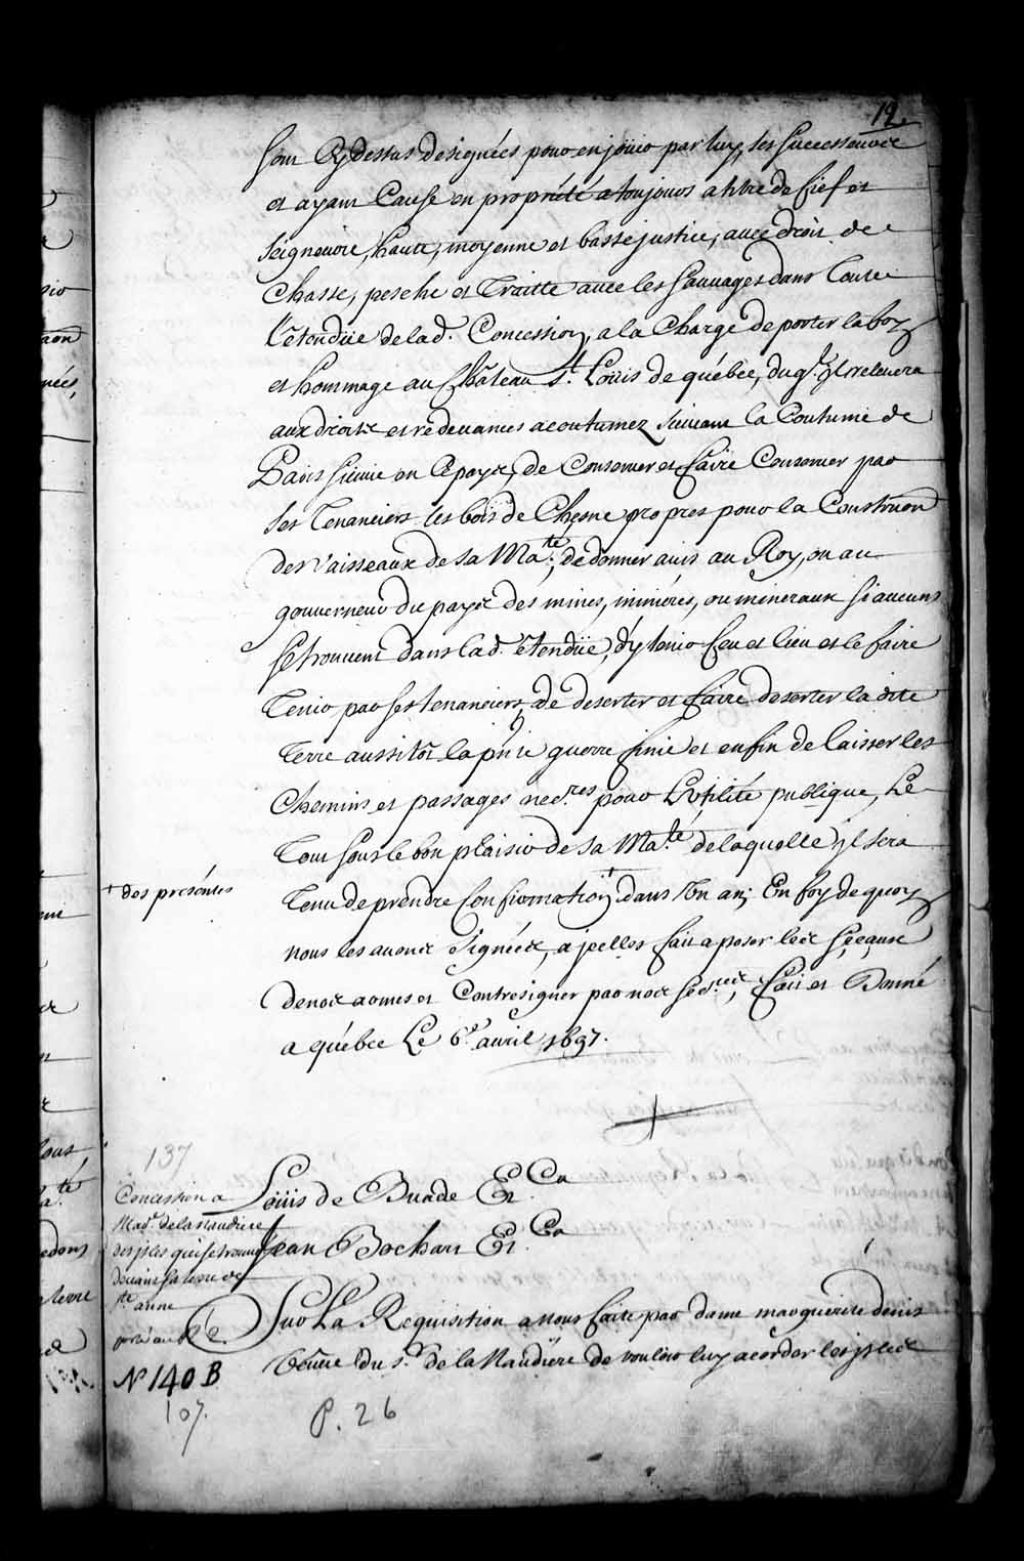 12.
sont Cy dessus designées pour en joüir par luy, ses successeurs
et ayant Cause en propriété a toujours a titre de fief et
seigneurie, haute, moyenne et basse justice, avec droit de
Chasse, pesche et Traitte avec les sauvages dans Toute
l'etendüe de lad. Concession, a la Charge de porter la foy
et hommage au Château St. Loüis de québec, duql. il relevera
aux droits et redevances acoutumez suivant la Coutume de
Paris suivie en Ce payis, de Conserver et faire Conserver par
ses Tenanciers les bois de Chesne propres pour la Construon
des Vaisseaux de sa Mate., de donner avis au Roy, ou au
gouverneur du payis des mines, minieres, ou mineraux si aucuns
se trouvent dans lad. etendüe, d'y tenir feu et lieu et le faire
Tenir par ses tenanciers, de deserter et faire deserter la dite
Terre aussitôt la pnte guerre finie et enfin de laisser les
Chemins et passages necres. pour L'utilité publique, Le
Tout sous le bon plaisir de sa Maté. de laquelle il sera
+ des présentes
Tenu de prendre Confirmation + dans Un an; En foy de quoy
nous les avons signées, a jcelles fait aposer les sceaux
de nos armes et Contresigner par nos secres., fait et Donné
a québec Le 6e. avril 1697.
137
Concession a
Made. de la naudiere
des isles qui se trouvent
devant sa terre de
ste anne
N 140 B
107.
Loüis de Buade Et. Ca
Jean Bochart Et. Ca
Sur La Requisition a nous faite par dame marguerite denis
Veuve du Sr. de la Naudiere de vouloir luy acorder les isles
P. 26